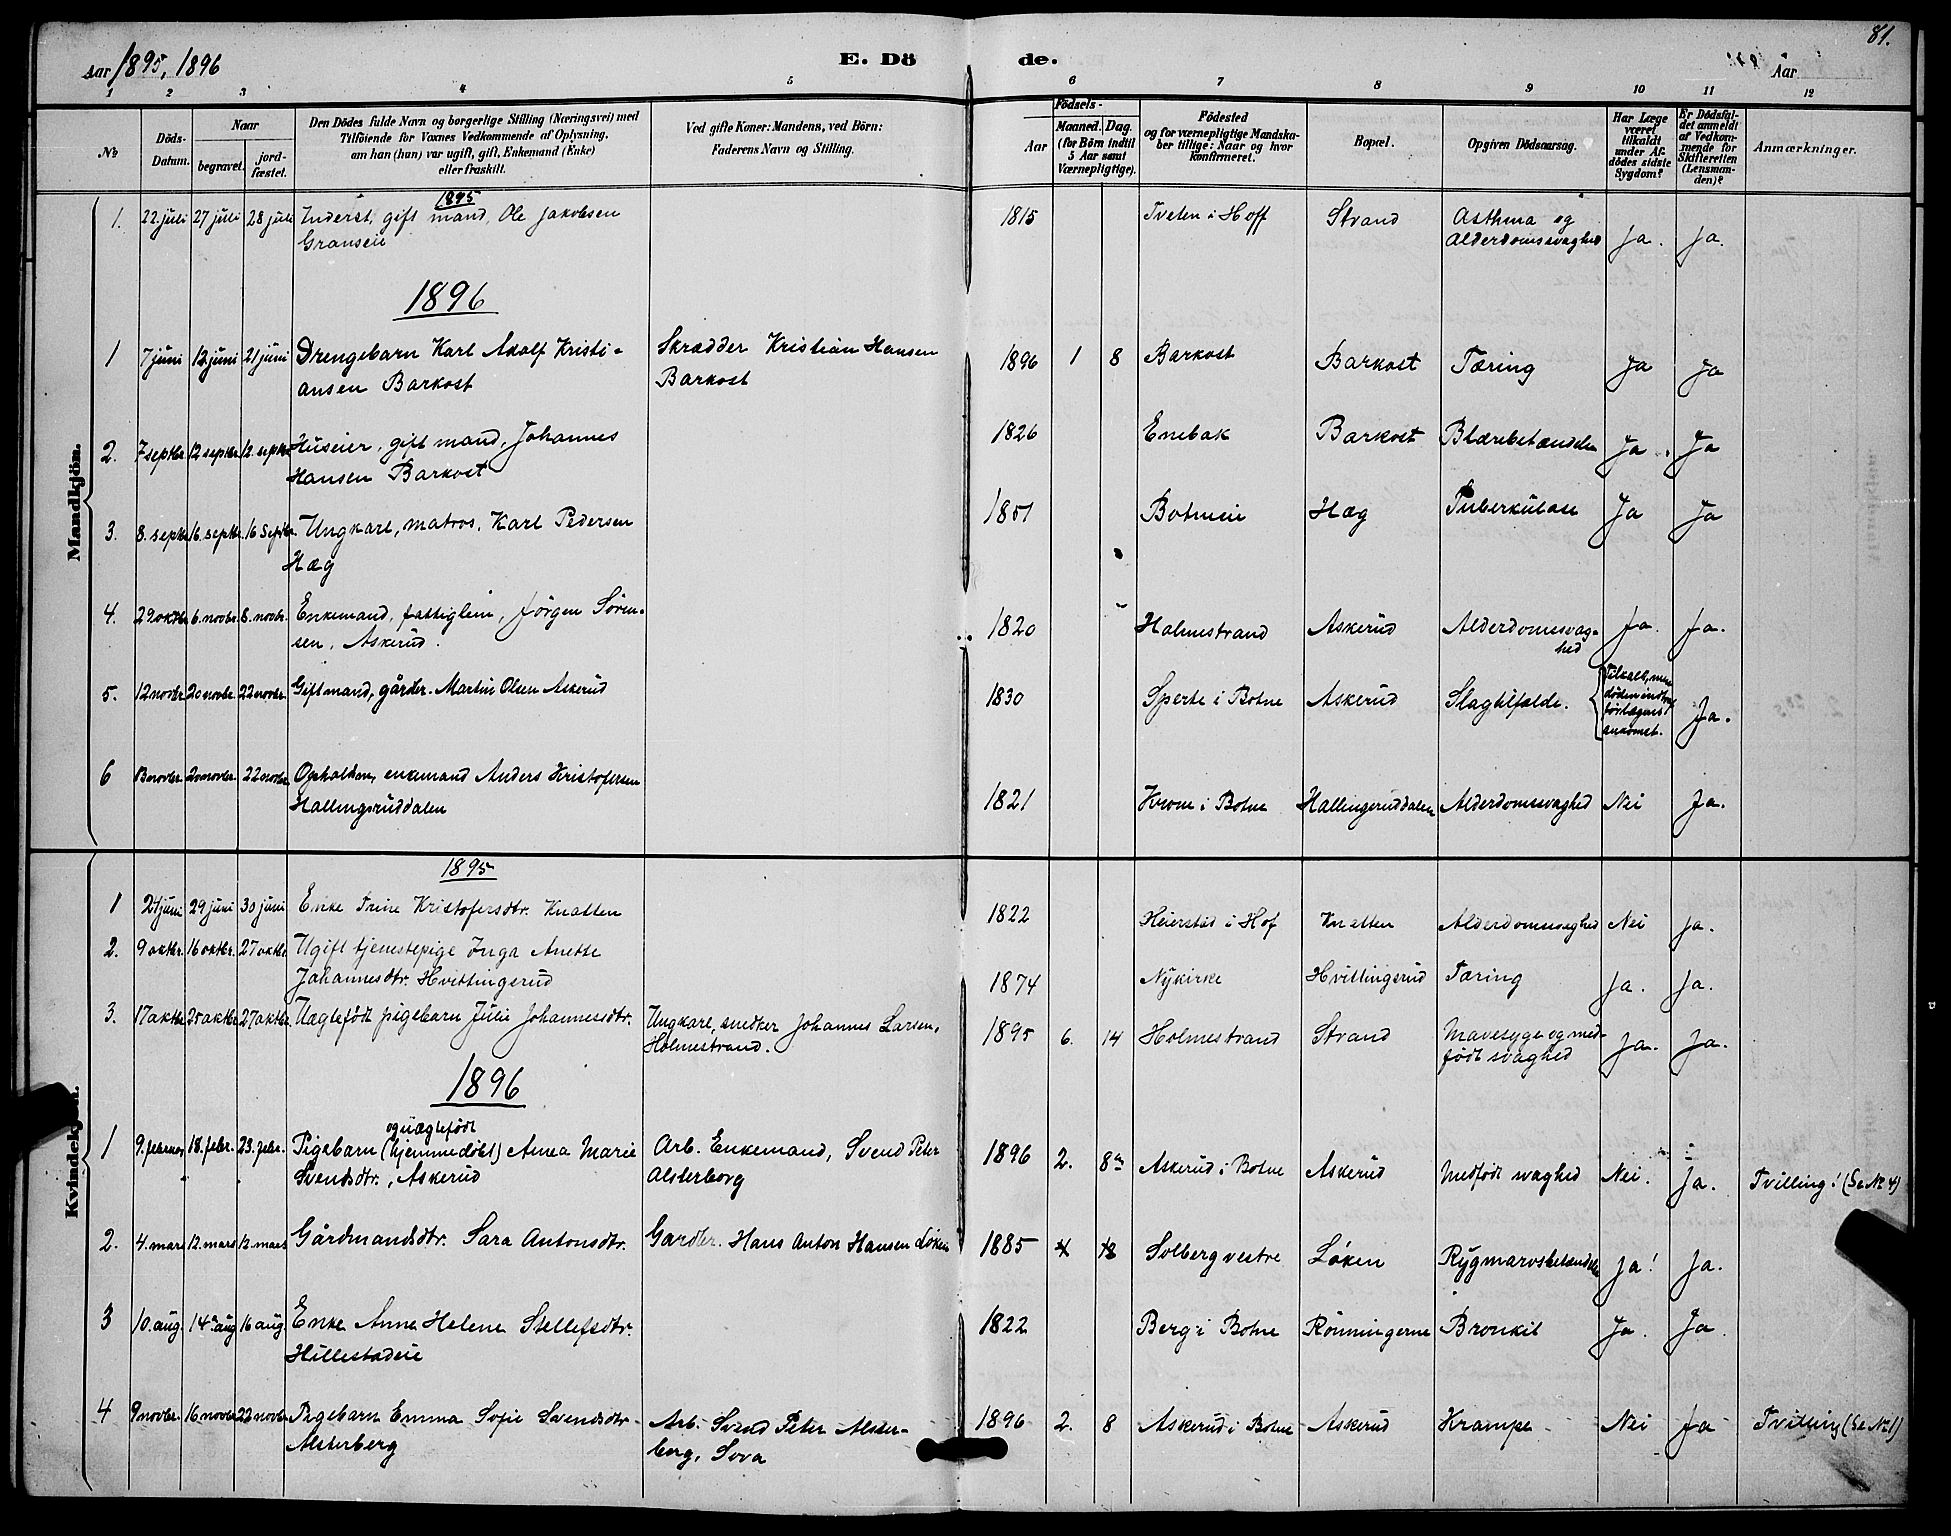 Aar 1895, 1896
E. Dö de.
Aar
81.
1 2 3 4 5 6 7 8 9 10 11 12
No
Döds-Datum.
Naar
begravet.
jord-fæstet.
Den Dödes fulde Navn og borgerlige Stilling (Næringsvei) med
Tilföiende for Voxnes Vedkommende af Oplysning,
om han (hun) var ugift, gift, Enkemand (Enke)
eller fraskilt.
Ved gifte Koner: Mandens, ved Börn:
Faderens Navn og Stilling.
Födsels-
Aar
Maaned. Dag.
(for Börn indtil
5 Aar samt
Værnepligtige).
Födested
og for værnepligtige Mandska-
ber tillige: Naar og hvor
konfirmeret.
Bopæl.
Opgiven Dödsaarsag.
Har Læge
været
tilkaldt
under Af-
dödes sidste
Sygdom?
Er Dödsfal-
det anmeldt
af Vedkom-
mende for
Skifteretten
(Lensman-
den)?
Anmærkninger.
Mandkjön.
1895
1. 22. juli 27 juli 28 juli Inderst, gift mand, Ole Jakobsen 1815 Tveten i Hoff Strand Asthma og
Granseie Alderdomssvaghed Ja. Ja.
1896
1 7 juni 12 juni 21 juni Drengebarn Karl Adolf Kristi- Skrædder Kristian Hansen 1896 1 8 Barkost Barkost Tæring Ja Ja
ansen Barkost Barkost
2. 7 septbr. 12 septbr. 12. septbr. Huseier, gift mand, Johannes 1826 Enebak Barkost Blærebetændelse Ja. Ja
Hansen Barkost
3. 8. septbr. 16. septbr. 16 septbr. Ungkarl, matros, Karl Pedersen 1851 Botneie Hæg Tuberkulose Ja Ja
Hæg
4. 29 oktbr. 6. novbr. 8. novbr. Enkemand, fattiglem, Jørgen Søren- 1820 Holmestrand Askerud Alderdomssvag- Ja. Ja.
sen, Askerud. hed
5. 12 novbr. 20 novbr. 22 novbr. Gift mand, gårdbr. Martin Olsen Askerud 1830 Sperte i Botne Askerud Slagtilfælde. Tilkalt, men
døden indtraf
før lægens
ankomst. Ja.
6 13 novbr. 20 novbr. 22 novbr. enkemand Anders Kristofersen 1821 Krone i Botne Hallingsruddalen Alderdomssvaghed Nei Ja.
Hallingsruddalen
Kvindekjön.
1895
1 juni 29 juni 30 juni Enke Trine Kristofersdtr. Knatten 1822 Heierstad i Hof Knatten Alderdomssvaghed Nei Ja.
2. 9 oktbr. 16 oktbr. 27 oktbr. Ugift tjenestepige Inga Anette 1874 Nykirke Hvittingsrud Tæring Ja. Ja.
Johannesdtr. Hvittingsrud
3. 17 oktbr 25 oktbr 27 oktbr. Uægtefødt pigebarn Julie Johannesdtr. Ungkarl, snedker Johannes Larsen, 1895 6. 14 Holmestrand Strand Mavesyge og med- Ja. Ja.
Holmestrand. født svaghed
1896
og uægtefødt
1 9. februar 18. febr. 23. febr. Pigebarn (hjemmedøbt) Anna Marie Arb. Enkemand, Svend Peter 1896 2. 8 Askerud i Botne Askerud Medfødt svaghed Nei. Ja. Tvilling! (Se No 4)
Svendsdtr., Askerud Alsterborg
2. 4. mars 12. mars 12. mars Gårdmandsdtr. Sara Antonsdtr. Gardbr. Hans Anton Hansen Løken 1885 4 18 Solberg vestre Løken Rygmarvsbetændelse Ja! Ja.
3 10. aug. 14. aug 16 aug. Enke Anne Helene Stellefsdtr. 1822 Berg i Botne Rönningerne Bronkit Ja. Ja.
Hillestadeie
4 9 novbr. 16 novbr 22 novbr. Pigebarn Emma Sofie Svendsdtr. Arb. Svend Peter Alster- 1896 2. 8 Askerud i Botne Askerud Krampe Nei Ja Tvilling (Se No 1)
Alsterberg berg, Sova